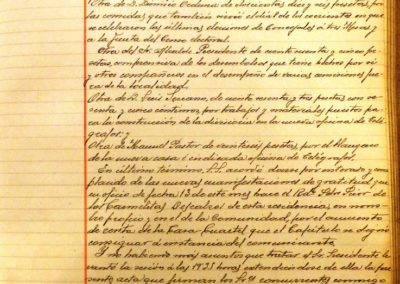 Otra de D. Dionisio Cedena de doscientas diez y seis pesetas, por
las comidas, que también sirvió el dia de los recuentos en que
se celebraron las últimas elecciones de Concejales á las Mesas y
a la Junta del Censo electoral.
Otra del Sr. Alcalde Presidente de cuenta y cinco pe-
setas, comprensiva de los desembolsos que tiene hechos por si
y otros compañeros en el desempeño de varias comisiones fue-
ra de la localidad.
Otra de D. Luis de ciento cuenta y tres pesetas con se-
tenta y cinco centimos, por trabajos y materiales puestos pa-
ra la construcción de la división en la nueva oficina de Telé-
grafos; y
Otra de Manuel Pastor de veintiseis pesetas, por el blanqueo
de la nueva casa é indicada oficina de Telegrafos.
En último término, S.S. acordó darse por enterado y com-
placido de las nuevas manifestaciones de gratitud que
en oficio de fecha 13 de este mes hace el Rvdo. Pdre. Prior de
los Carmelitas Descalzos de esta residencia, en nom-
bre propio y en el de la Comunidad, por el aumento
de renta de la Casa-Cuartel que el Cabildo se dignó
consignar á instancia del comunicante.
Y no habiendo mas asuntos que tratar el Sr. Presidente le-
vantó la sesión á las 19'21 horas extendiéndose de ella la pre-
sente acta que firman los Sres. concurrentes conmigo